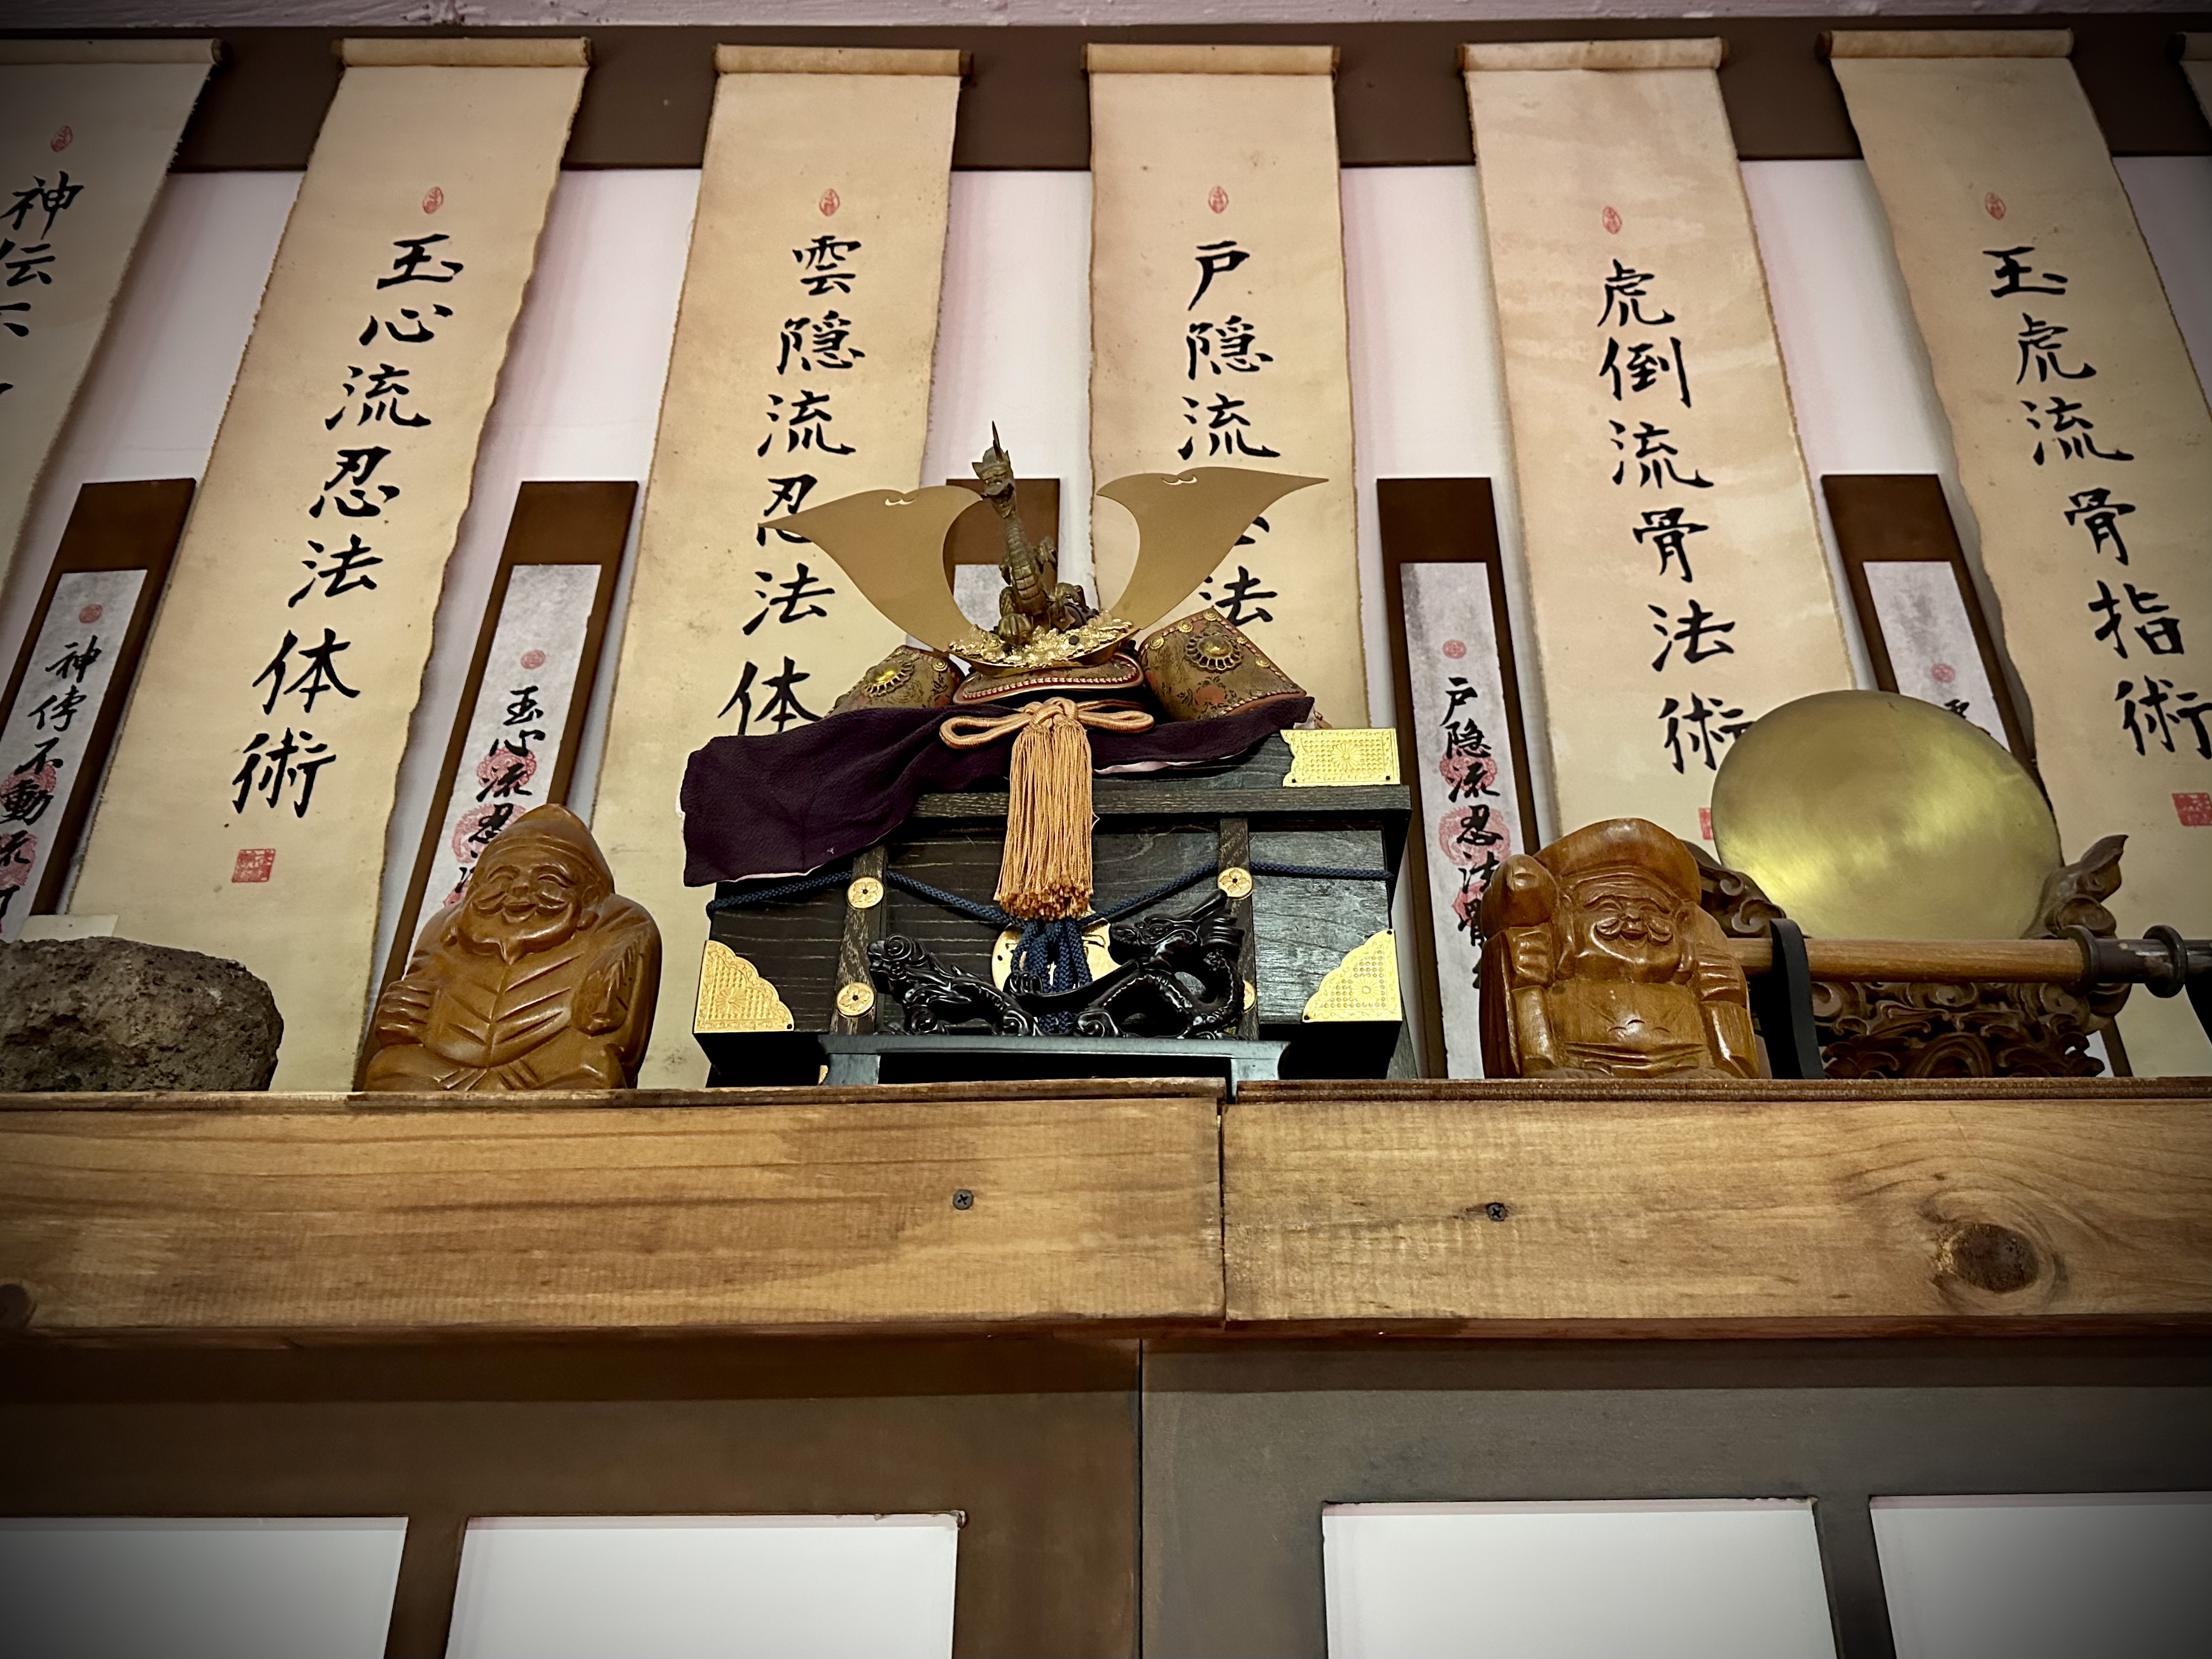 玉虎流骨指術
虎倒流骨法術
戸隠流
法
雲隠流忍法体
玉心流忍法体術
神伝不
戸隠流忍法
玉心流忍
神伝不動流